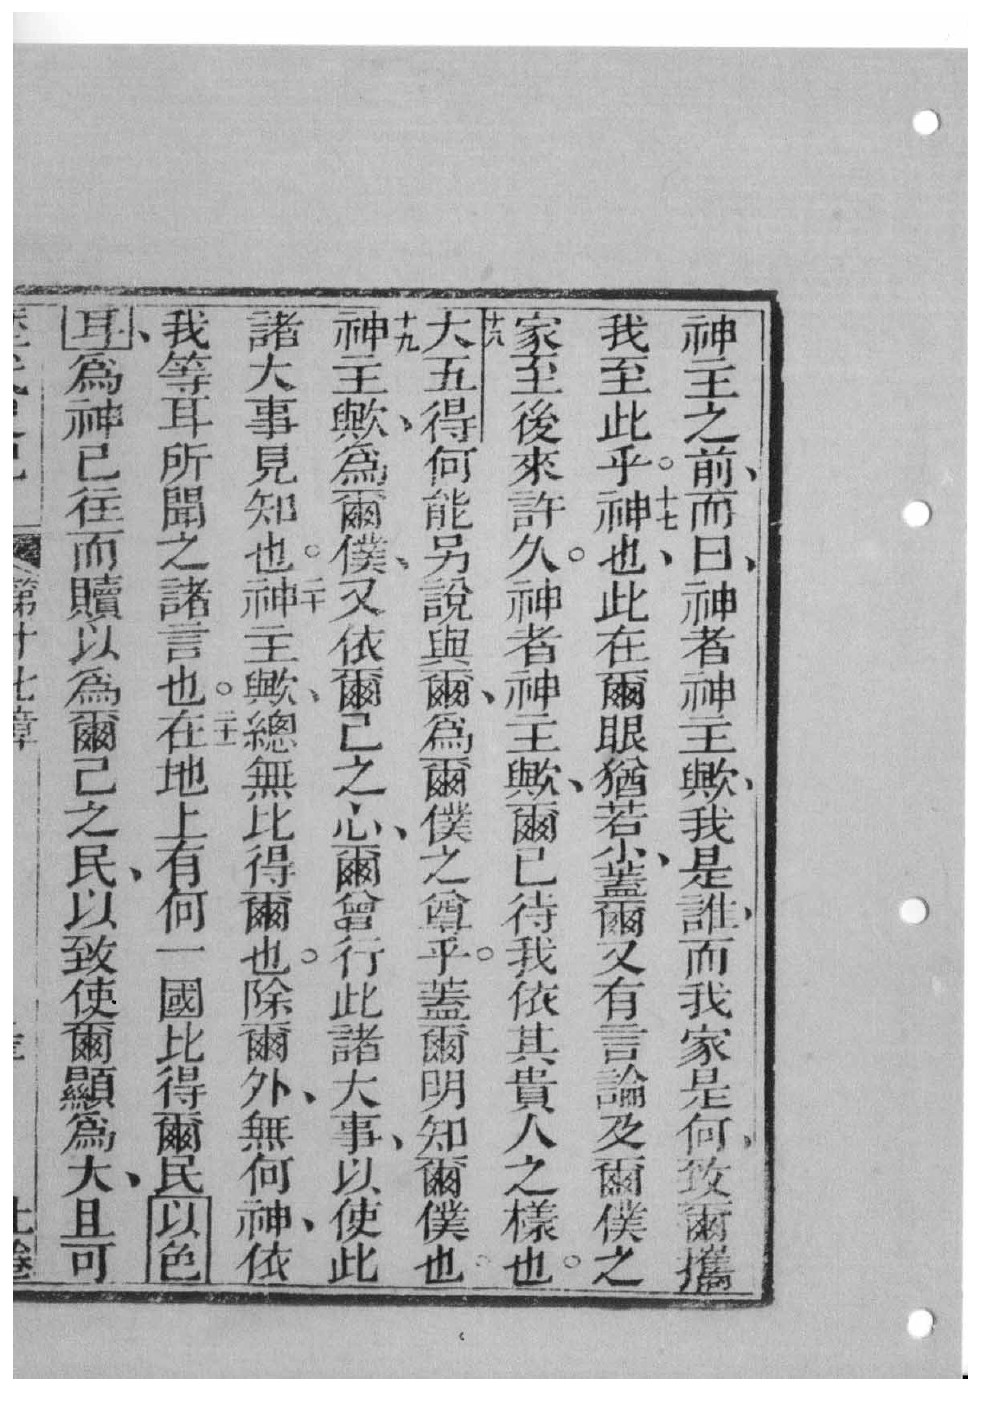 神主之前、而曰、神者神主歟、我是誰、而我家是何、致爾攜
我至此乎。十七神也、此在爾眼猶若小、蓋爾又有言論及爾僕之
家至後來許久。神者神主歟、爾已待我依其貴人之樣也。
十八大五得何能另說與爾、爲爾僕之尊乎。蓋爾明知爾僕也。
十九神主歟、爲爾僕、又依爾己之心、爾曾行此諸大事、以使此
諸大事見知也。二十神主歟、總無比得爾也。除爾外、無何神、依
我等耳所聞之諸言也。二十一在地上有何一國比得爾民以色
耳、爲神已往而贖以爲爾己之民、以致使爾顯爲大、且可
第十七章
上卷